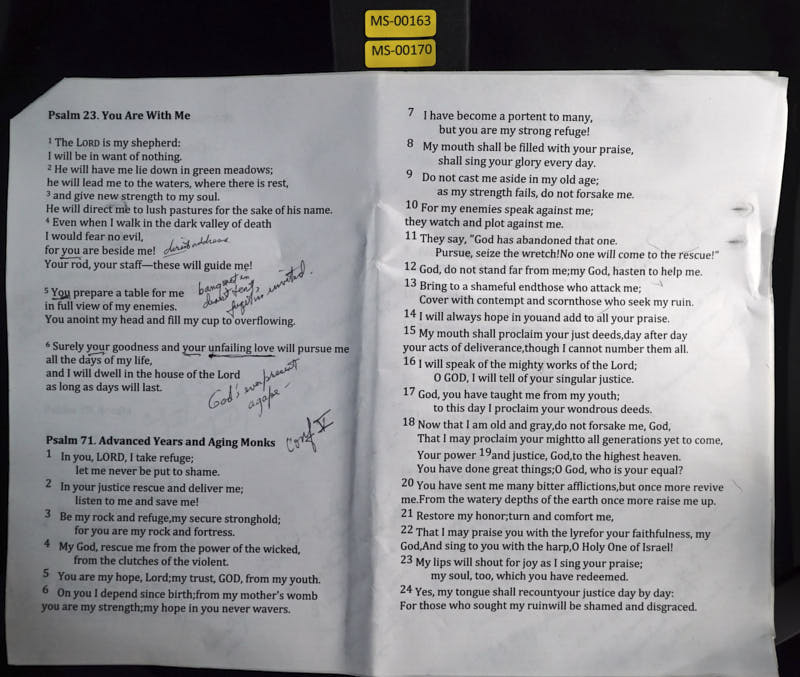 MS-00163
MS-00170
Psalm 23. You Are With Me
1 The LORD is my shepherd:
I will be in want of nothing.
2 He will have me lie down in green meadows;
he will lead me to the waters, where there is rest,
3 and give new strength to my soul.
He will direct me to lush pastures for the sake of his name.
4 Even when I walk in the dark valley of death
I would fear no evil,
for you are beside me! direct address
Your rod, your staff—these will guide me!
5 You prepare a table for me banquet in
in full view of my enemies. desert tent, fugitive invited.
You anoint my head and fill my cup to overflowing.
6 Surely your goodness and your unfailing love will pursue me
all the days of my life,
and I will dwell in the house of the Lord
as long as days will last.
God's ever present
agape –
Psalm 71. Advanced Years and Aging Monks Conf V
1 In you, LORD, I take refuge;
let me never be put to shame.
2 In your justice rescue and deliver me;
listen to me and save me!
3 Be my rock and refuge,my secure stronghold;
for you are my rock and fortress.
4 My God, rescue me from the power of the wicked,
from the clutches of the violent.
5 You are my hope, Lord;my trust, GOD, from my youth.
6 On you I depend since birth;from my mother's womb
you are my strength;my hope in you never wavers.
7 I have become a portent to many,
but you are my strong refuge!
8 My mouth shall be filled with your praise,
shall sing your glory every day.
9 Do not cast me aside in my old age;
as my strength fails, do not forsake me.
10 For my enemies speak against me;
they watch and plot against me.
11 They say, "God has abandoned that one.
Pursue, seize the wretch!No one will come to the rescue!"
12 God, do not stand far from me;my God, hasten to help me.
13 Bring to a shameful endthose who attack me;
Cover with contempt and scornthose who seek my ruin.
14 I will always hope in youand add to all your praise.
15 My mouth shall proclaim your just deeds,day after day
your acts of deliverance,though I cannot number them all.
16 I will speak of the mighty works of the Lord;
O GOD, I will tell of your singular justice.
17 God, you have taught me from my youth;
to this day I proclaim your wondrous deeds.
18 Now that I am old and gray,do not forsake me, God,
That I may proclaim your mightto all generations yet to come,
Your power 19and justice, God,to the highest heaven.
You have done great things;O God, who is your equal?
20 You have sent me many bitter afflictions,but once more revive
me.From the watery depths of the earth once more raise me up.
21 Restore my honor;turn and comfort me,
22 That I may praise you with the lyrefor your faithfulness, my
God,And sing to you with the harp,O Holy One of Israel!
23 My lips will shout for joy as I sing your praise;
my soul, too, which you have redeemed.
24 Yes, my tongue shall recountyour justice day by day:
For those who sought my ruinwill be shamed and disgraced.